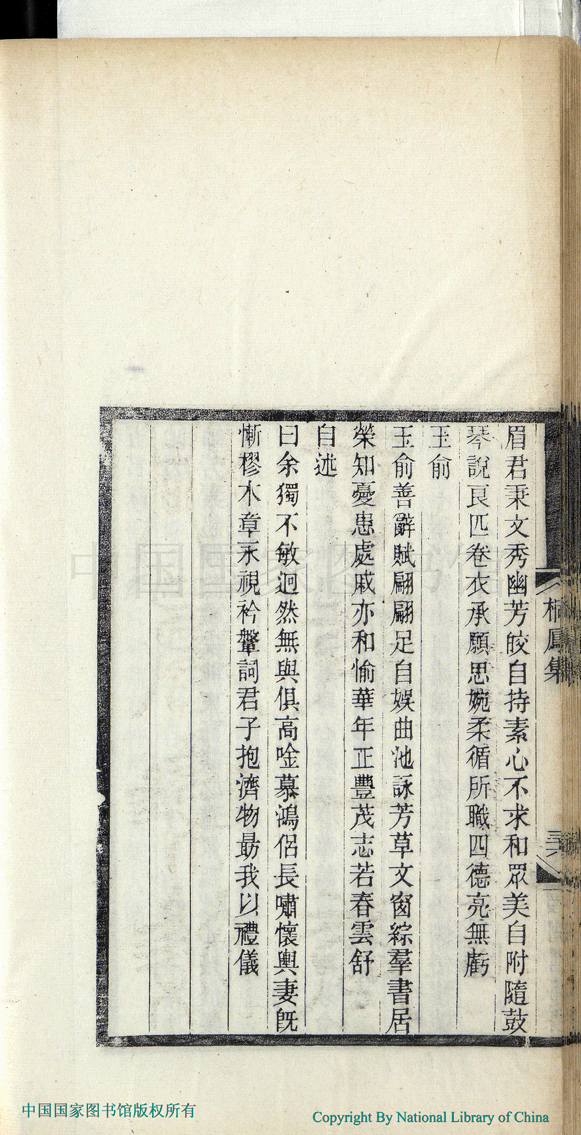 眉君秉文秀幽芳皎自持素心不求和眾美自附隨鼓
琴說良匹卷衣承願思婉柔循所職四德亮無虧
玉俞
玉俞善辭賦翩翩足自娛曲池詠芳草文窗綜羣書居
榮知憂患處戚亦和愉華年正豐茂志若春雲舒
自述
曰余獨不敏迥然無與俱高唫慕鴻侶長嘯懷輿妻旣
慚樛木章永視衿鞶詞君子抱濟物勗我以禮儀
桐鳳集
中国国家图书馆
中国国家图书馆版权所有
Copyright By National Library of China